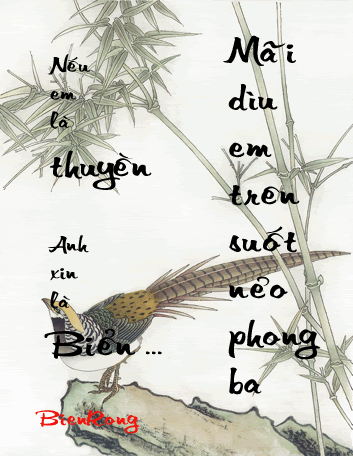 Nếu
em
là
thuyền
Anh
xin
là
Biển ...
Mãi
dìu
em
trên
suốt
nẻo
phong
ba
BienRong